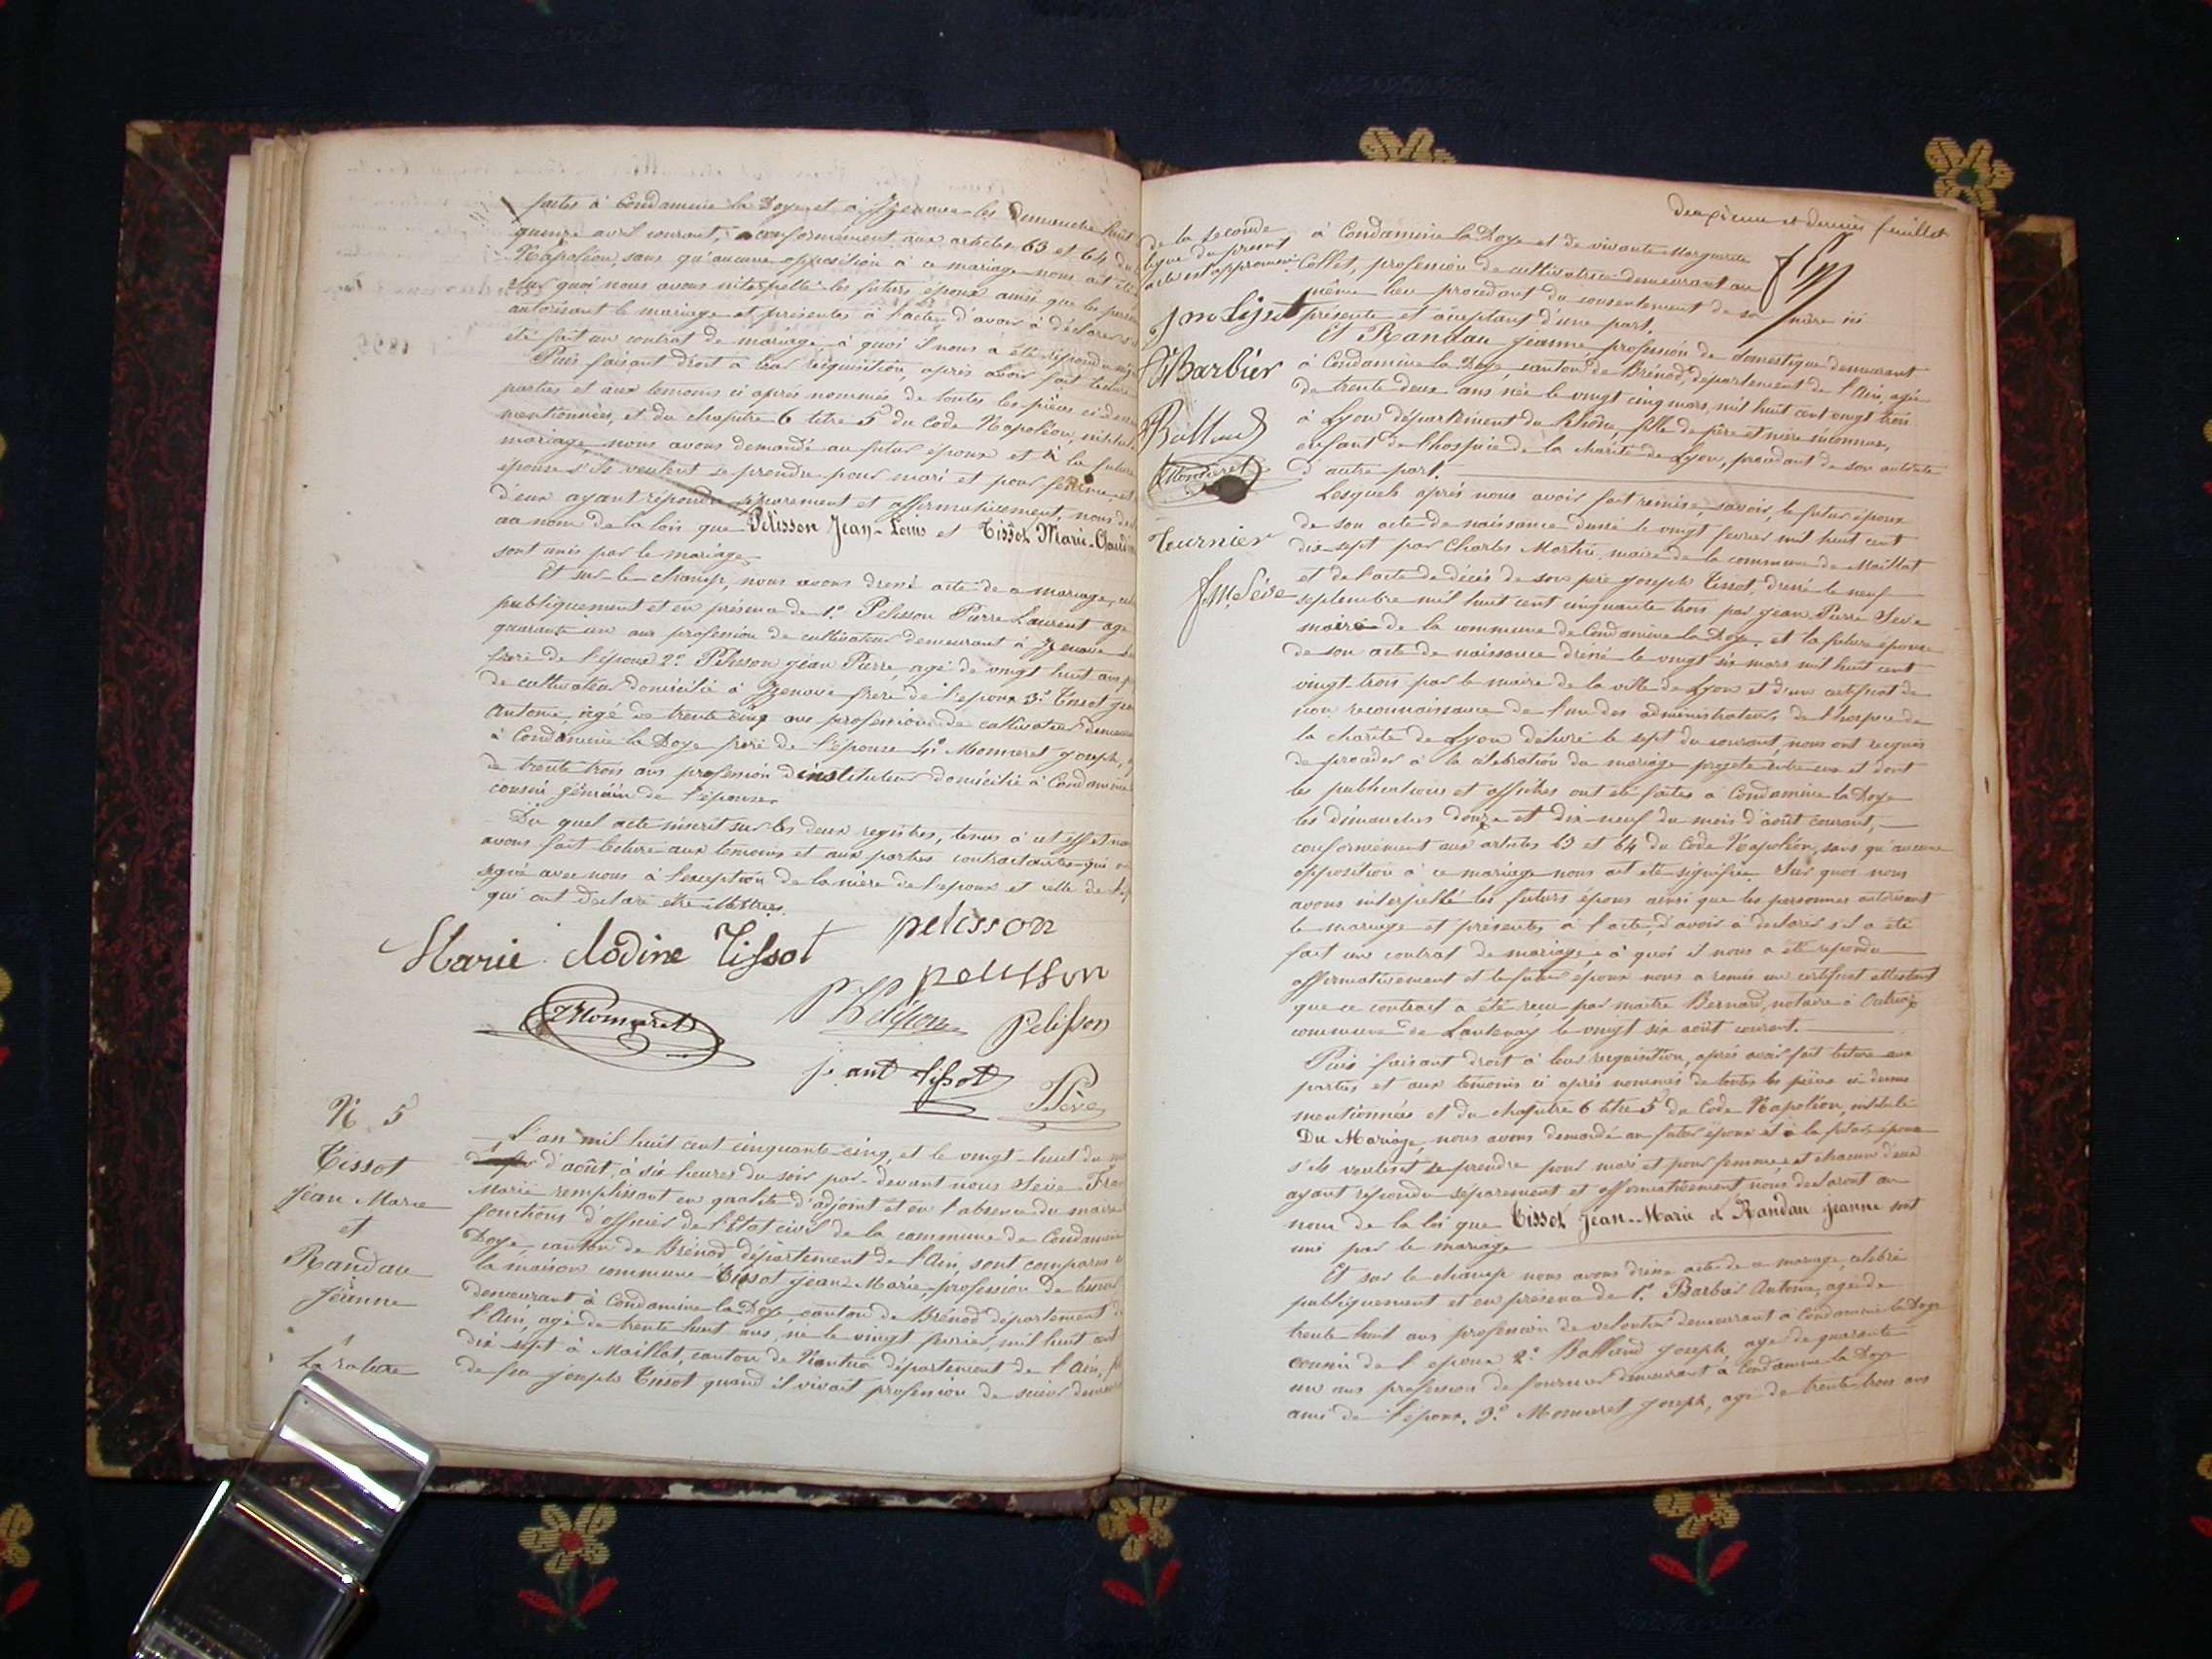 faites à Condamine la Doye et à Izenave les dimanche huit
quinze avril courant, conformément aux articles 63 et 64 du
Napoléon, sans qu'aucune opposition à ce mariage nous ait été
sur quoi nous avons interpellé les futurs époux ainsi que les
autorisant le mariage et présentes à l'acte, d'avoir à déclarer s'il
été fait un contrat de mariage, à quoi il nous a été répondu
Puis faisant droit à leur réquisition, après avoir fait lecture
parties et aux temoins ci après nommés de toutes les pièces ci dessus
mentionnées, et du chapitre 6 titre 5 du Code Napoléon, intitulé
mariage nous avons demandé au futur époux et à la future
épouse s'ils veulent se prendre pour mari et pour femme et
d'eux ayant répondu séparement et affirmativement, nous
au nom de la loi que Pélisson Jean-Louis et Tissot Marie-Claudine
sont unis par le mariage
Et sur-le-champ, nous avons dressé acte de ce mariage
publiquement et en présence de 1.° Pelisson Pierre Laurent agé
quarante un ans profession de cultivateur demeurant à Izenave
frère de l'époux 2.° Pelisson Jean Pierre, agé de vingt huit ans
de cultivateur domicilié à Izenave frère de l'époux 3.° Tissot Jean
Antoine, agé de trente cinq ans profession de cultivateur
à Condamine la Doye frère de l'épouse 4.° Monneret Joseph,
de trente trois ans profession d'instituteur domicilié à Condamine
cousin germain de l'épouse
Du quel acte inscrit sur les deux registres, tenus à cet effet nous
avons fait lecture aux temoins et aux parties contractantes qui
signé avec nous à l'exception de la mère de l'époux et celle de
qui ont déclaré être illettrées.
Marie Clodine Tissot pelisson
pelisson
Monneret P Pélisson Pelisson
j. ant tissot
Sève
N. 5
Tissot
Jean Marie
et
Randau
Jeanne
La rature
L'an mil huit cent cinquante-cinq, et le vingt-huit du
d'août, à six heures du soir par-devant nous Sève
Marie remplissant en qualité d'adjoint et en l'absence du maire
fonctions d'officier de l'Etat civil de la commune de Condamine
Doye, canton de Brénod département de l'Ain, sont comparus
la maison commune Tissot Jean-Marie, profession de
demeurant à Condamine la Doye, canton de Brénod département
l'Ain, agé de trente huit ans, né le vingt fevrier, mil huit cent
dix sept à Maillat, canton de Nantua département de l'Ain,
de feu Joseph Tissot quand il vivait profession de
deuxième et dernier feuillet
de la seconde
ligne du présent
acte est approuvée
J m tissot
A Barbier
Balland
Monneret
Tournier
f. m. Sève
à Condamine la Doye et de vivante Marguerite
Collet, profession de cultivatrice demeurant au
même lieu procédant du consentement de sa mère ici
présente et acceptant d'une part.
Et Randau Jeanne, profession de domestique demeurant
à Condamine la Doye, canton de Brénod, département de l'Ain, agée
de trente deux ans née le vingt cinq mars, mil huit cent vingt trois
à Lyon département du Rhône, fille de père et mère inconnus,
enfant de l'hospice de la charité de Lyon, procédant de son autorité
d'autre part.
Lesquels après nous avoir fait remise, savoir, le futur époux
de son acte de naissance dressé le vingt fevrier mil huit cent
dix-sept par Charles Martin, maire de la commune de Maillat
et de l'acte de décès de son père Joseph Tissot, dressé le neuf
septembre mil huit cent cinquante trois par Jean-Pierre Sève
maire de la commune de Condamine la Doye, et la future épouse
de son acte de naissance dressé le vingt six mars mil huit cent
vingt-trois par le maire de la ville de Lyon et d'un certificat de
non reconnaissance de l'un des administrateurs de l'hospice de
la charité de Lyon délivré le sept du courant, nous ont requis
de procéder à la célébration du mariage projeté entre eux et dont
les publications et affiches ont été faites à Condamine la Doye
les dimanches douze et dix-neuf du mois d'août courant,
conformément aux articles 63 et 64 du Code Napoléon, sans qu'aucune
opposition à ce mariage nous ait été signifiée. Sur quoi nous
avons interpellé les futurs époux ainsi que les personnes autorisant
le mariage et présentes à l'acte, d'avoir à déclarer s'il a été
fait un contrat de mariage, à quoi il nous a été répondu
affirmativement et le futur époux nous a remis un certificat attestant
que ce contrat a été reçu par maitre Bernard, notaire à Outriaz
commune de Lantenay le vingt six août courant.
Puis faisant droit à leur réquisition, après avoir fait lecture aux
parties et aux temoins ci après nommés de toutes les pièces ci dessus
mentionnées et du chapitre 6 titre 5 du Code Napoléon, intitulé
Du Mariage, nous avons demandé au futur époux et à la future épouse
s'ils veulent se prendre pour mari et pour femme, et chacun d'eux
ayant répondu séparement et affirmativement nous déclarons au
nom de la loi que Tissot Jean-Marie et Randau Jeanne sont
unis par le mariage
Et sur le champ nous avons dressé acte de ce mariage célébré
publiquement et en présence de 1.° Barbier Antoine, agé de
trente huit ans profession de demeurant à Condamine la Doye
cousin de l'époux 2.° Balland Joseph agé de quarante
un ans profession de demeurant à Condamine la Doye
ami de l'époux. 3.° Monneret Joseph, agé de trente trois ans